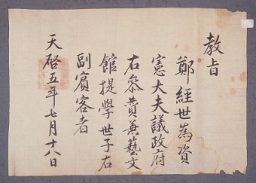 教旨
鄭經世爲資
憲大夫議政府
右參贊兼藝文
館提學世子右
副賓客者
天啓五年七月十八日